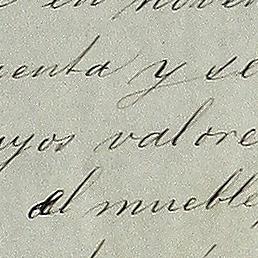 en novem
uenta y se
uyos valore
el mueble,